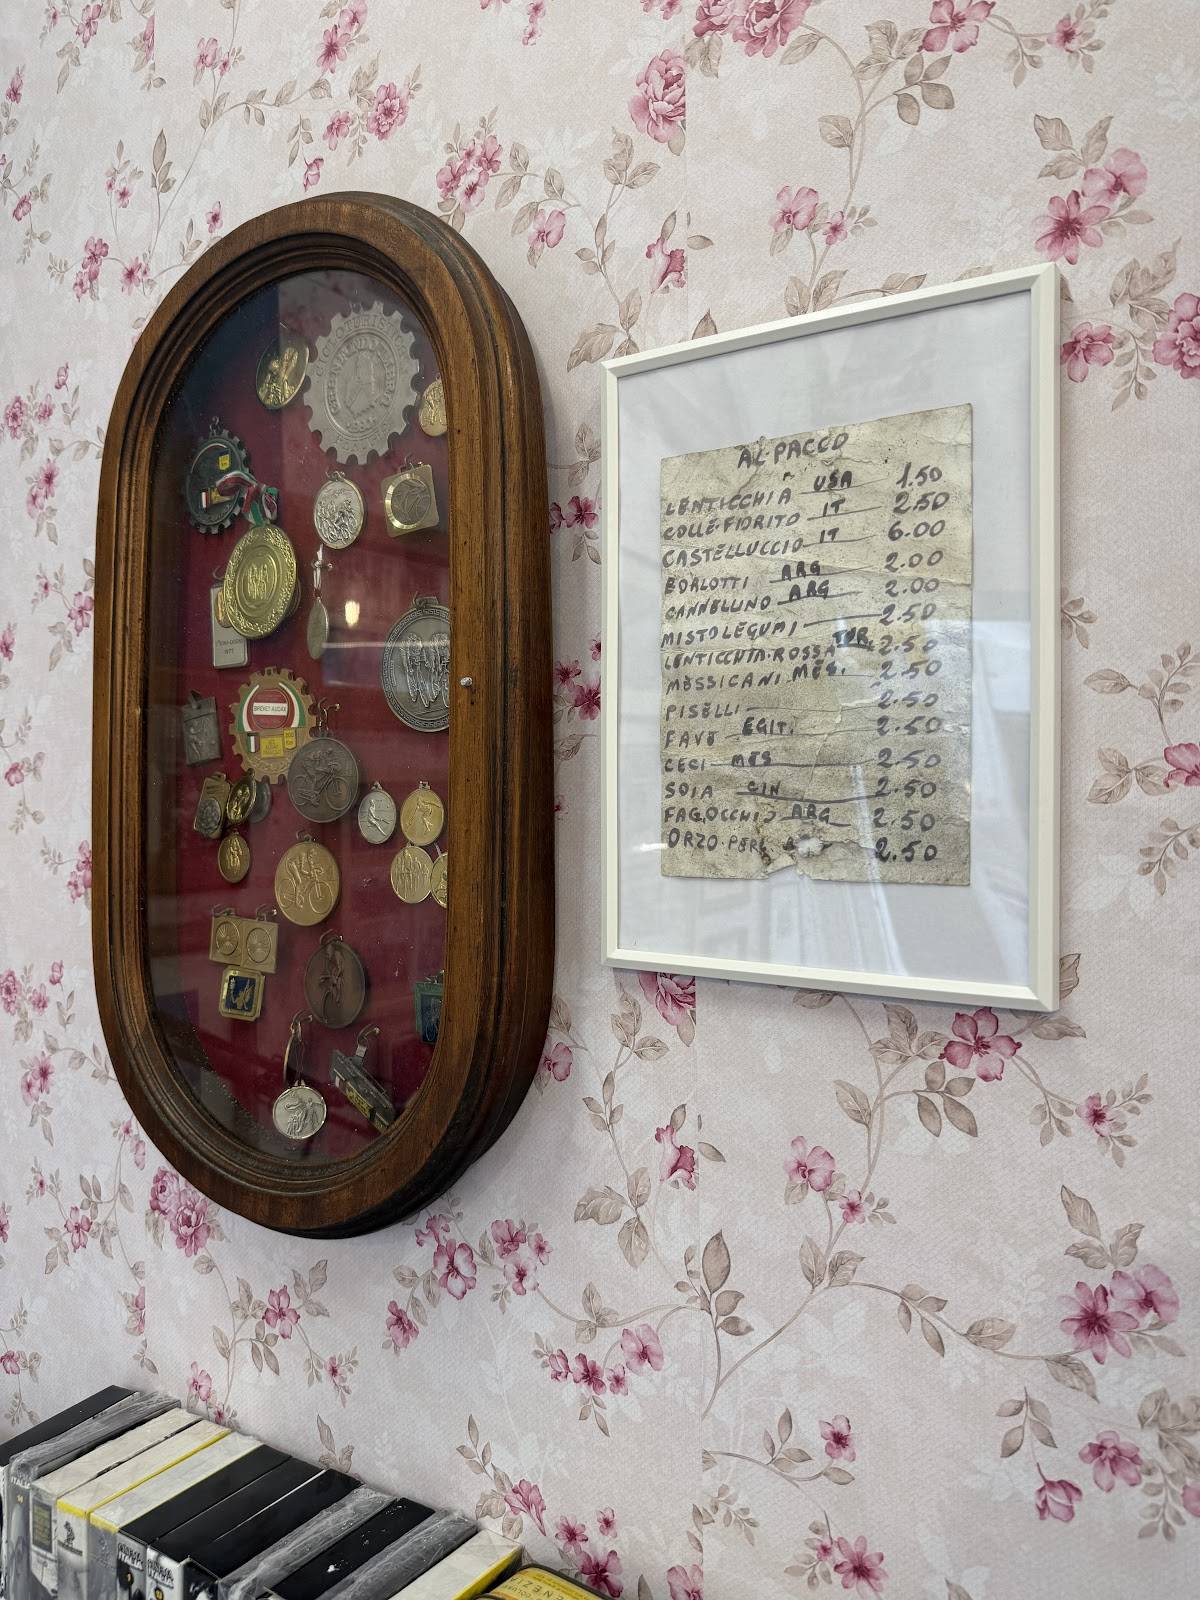 BREVET AUDAX
AL PACCO
LENTICCHIA USA 1.50
COLLE-FIORITO IT 2.50
CASTELLUCCIO IT 6.00
BORLOTTI ARG 2.00
CANNELLINO ARG 2.00
MISTO LEGUMI 2.50
LENTICCHIA-ROSSA TUR. 2.50
MESSICANI MES. 2.50
PISELLI 2.50
FAVE EGIT. 2.50
CECI MES 2.50
SOIA CIN 2.50
FAG.OCCHIO ARG 2.50
ORZO-PERL. 2.50